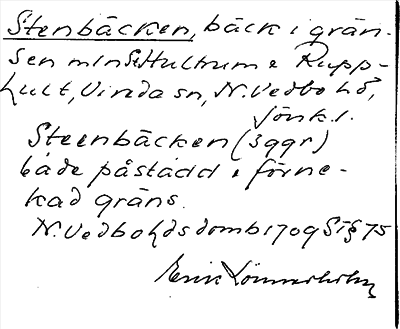 Stenbäcken, bäck i grän-
sen m. Hultrum o Rupp-
hult, Vireda sn, N. Vedbo hd,
Jönk. l.
Steenbäcken (3 ggr)
både påstådd o förne-
kad gräns.
N. Vedbo hds domb 1709 St § 75